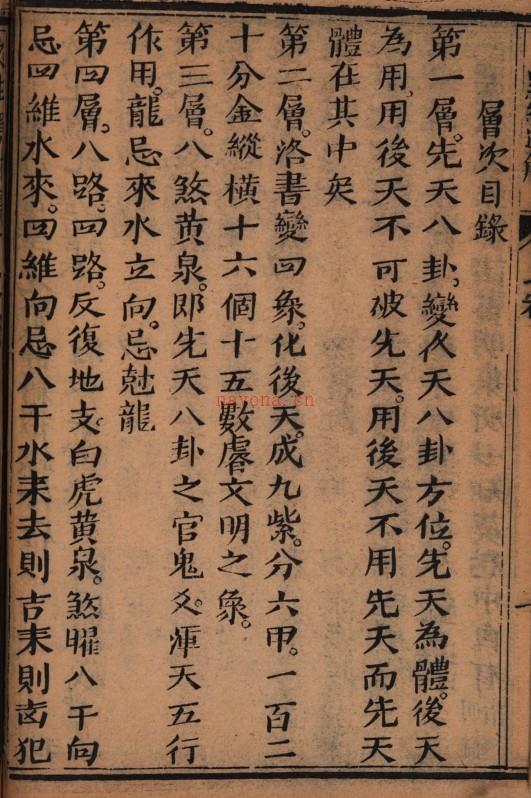 層次目錄
第一層。先天八卦。變後天八卦方位。先天為體。後天
為用。用後天不可破先天。用後天不用先天而先天
體在其中矣
第二層。洛書變四象。化後天。成九紫。分六甲。一百二
十分金縱橫十六個十五數。睿文明之象。
第三層。八煞黃泉。即先天八卦之官鬼爻。渾天五行
作用。龍忌來水立向。忌尅龍
第四層。八路。四路。反復地支。白虎黃泉。煞曜八干向
忌四維水來。四維向忌八干水来去則吉来則凶犯
nayona.cn